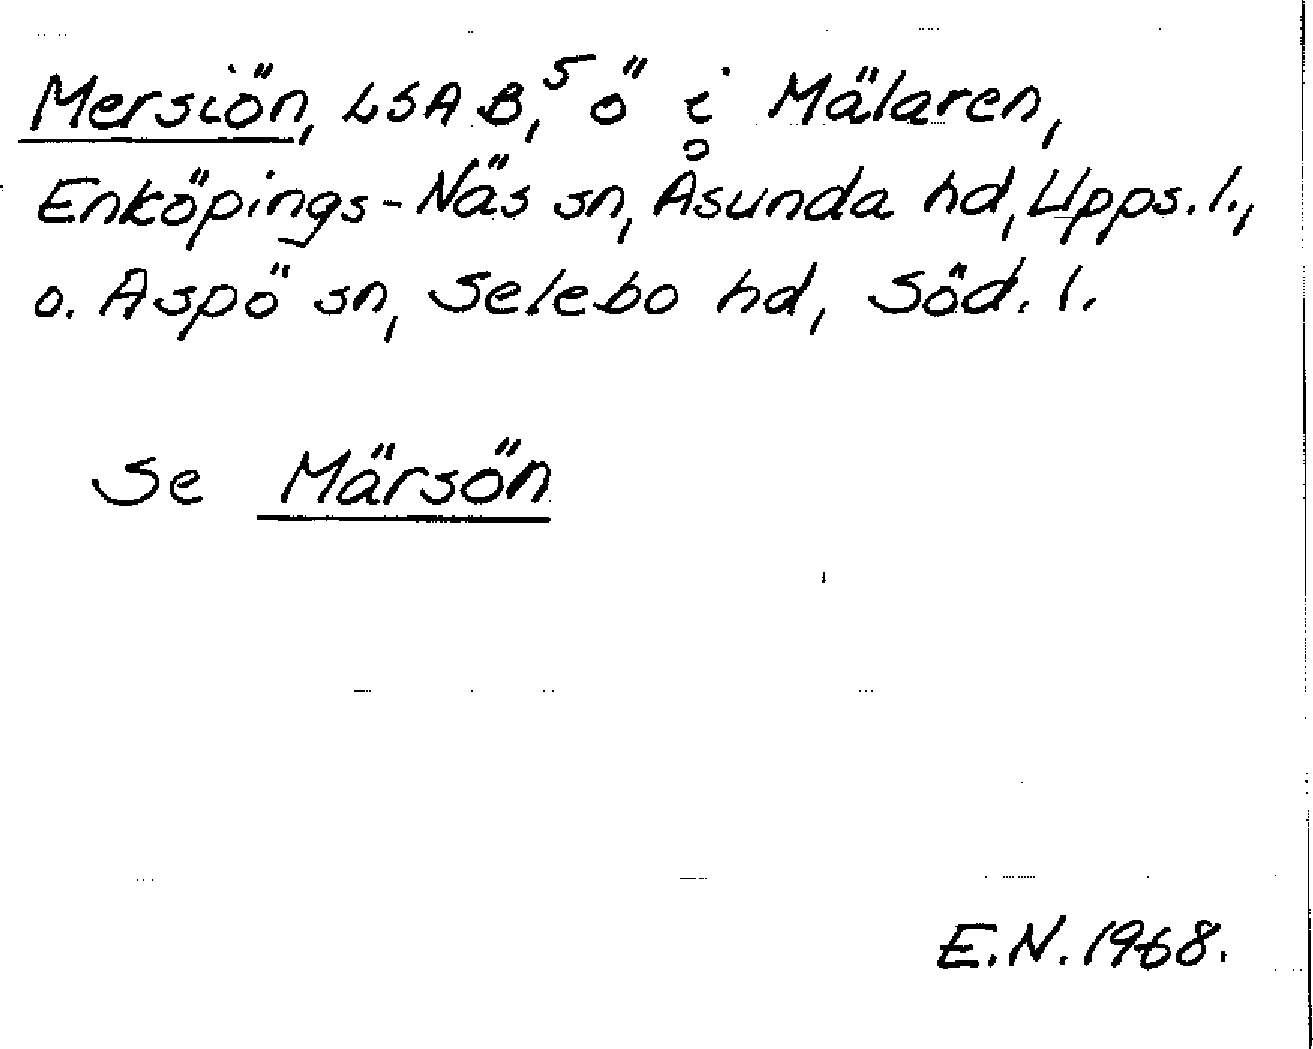 Mersiön, LSA B,⁵ ö i Mälaren,
Enköpings-Näs sn, Åsunda hd, Upps. l.,
o. Aspö sn, Selebo hd, Söd. l.
Se Märsön
E.N. 1968.